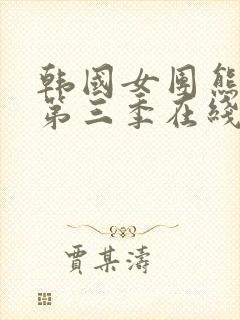 韩国女团熊
第三季在线
贾某涛